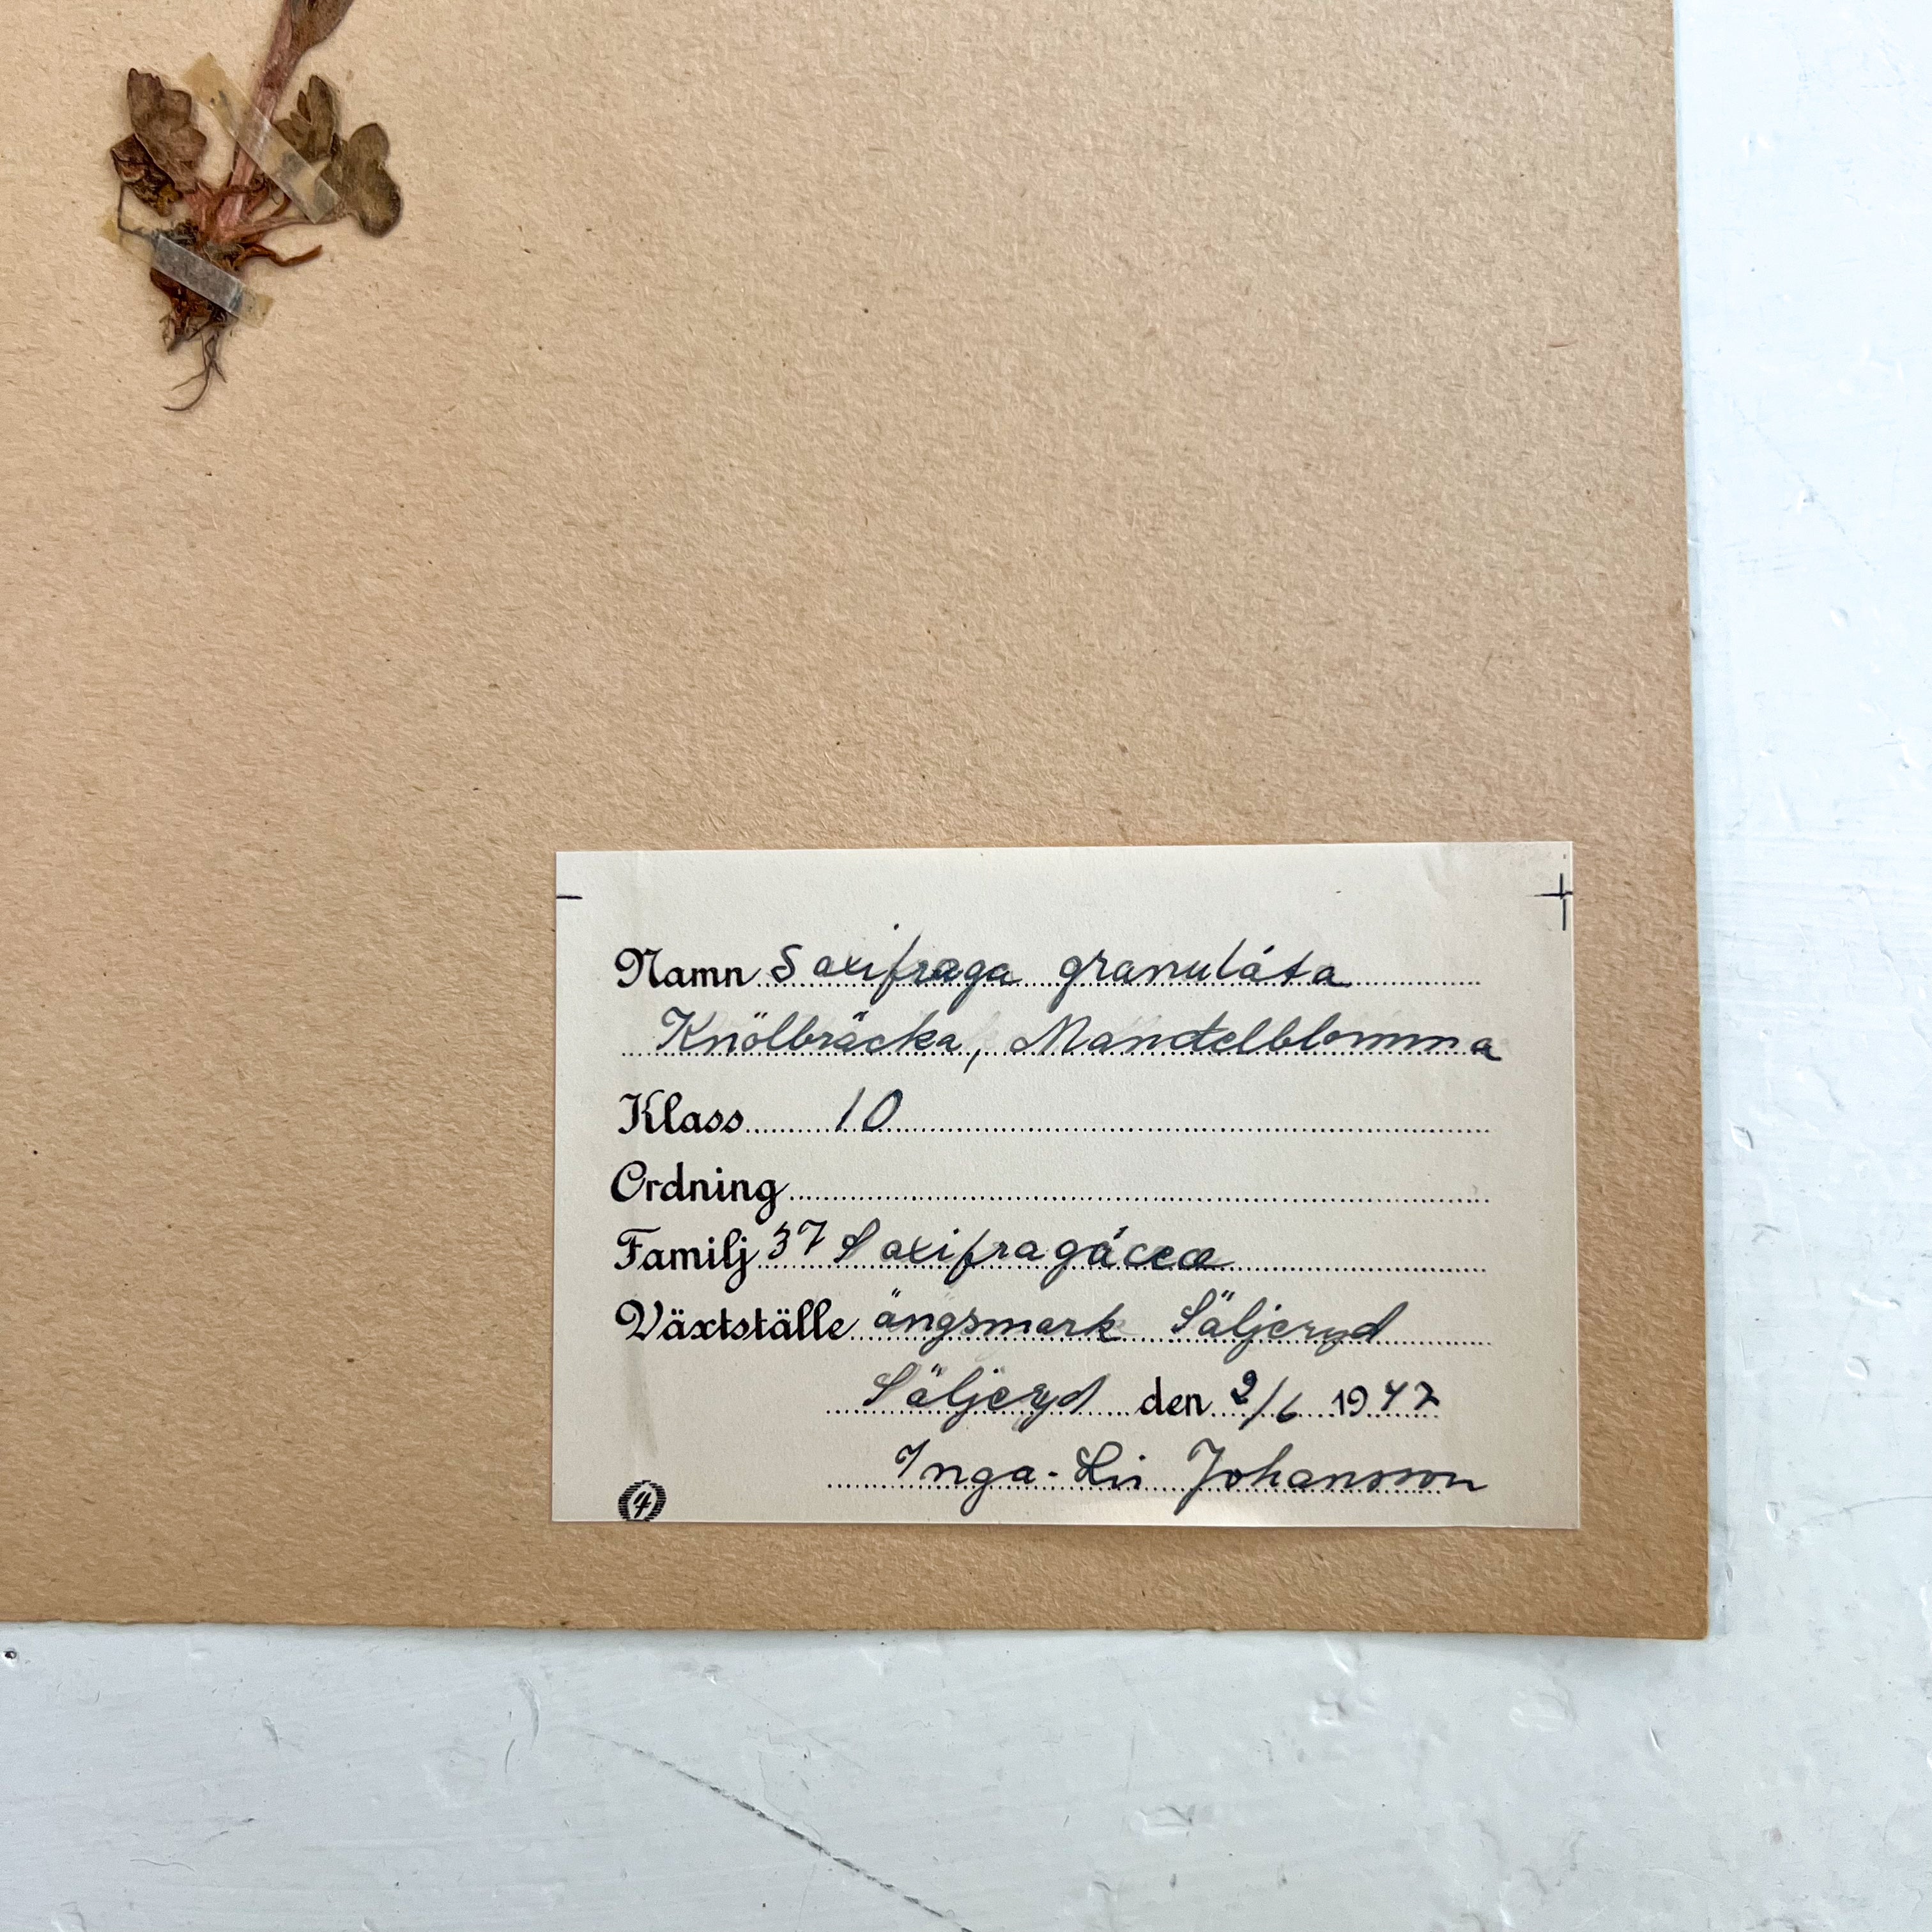 Namn Saxifraga granuláta
Knölbräcka, Mandelblomma
Klass 10
Ordning
Familj 37 Saxifragáceæ
Växtställe ängsmark Säljeryd
Säljeryd den 2/6 1947
Inga-Lis Johansson
4